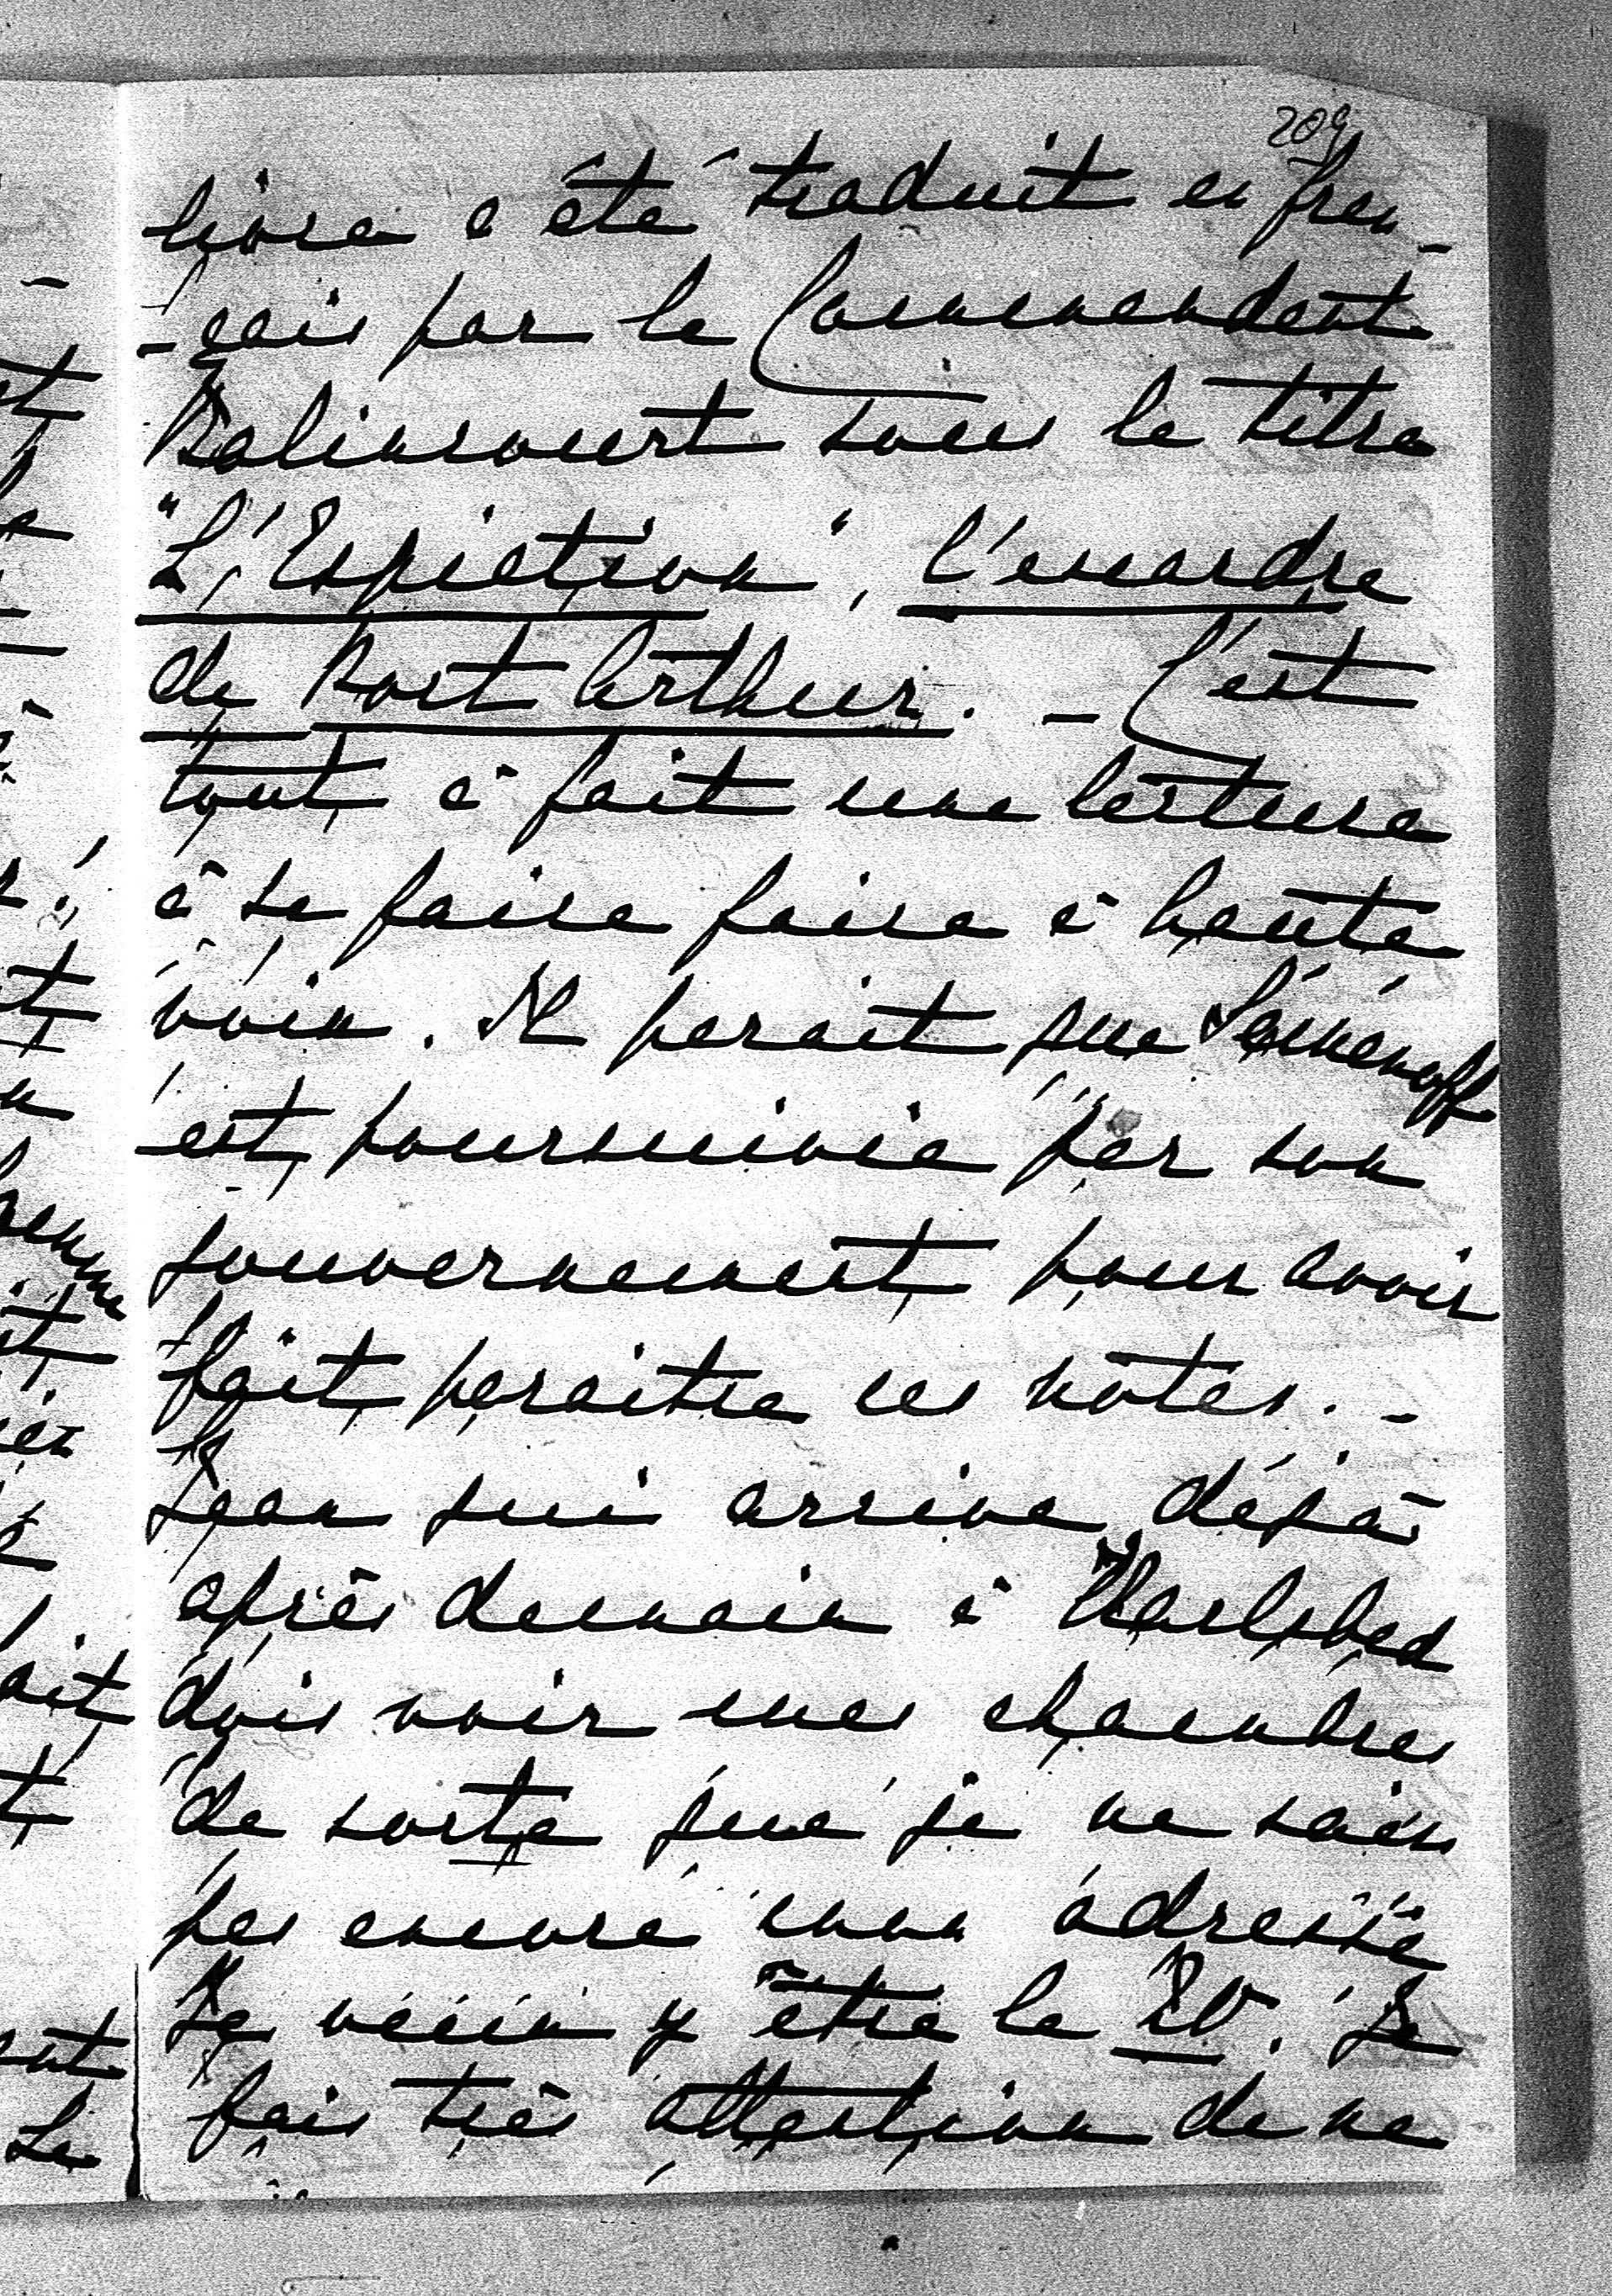 209
livre a été traduit en fran-
-çais par le Commandant
Balincourt sous le titre
"L'Expiation", l'escadre
de Port Arthur. - C'est
tout à fait une lecture
à se faire faire à haute
voix. Il parait que Séménoff
est poursuivie par son
gouvernement pour avoir
fait paraitre ces notes. -
Jean qui arrive déjà
après demain à Karlsbad
dois voir mes chambres
de sorte que je ne sais
pas encore mon adresse
Je veux y être le 20. Je
fais très attention de ne